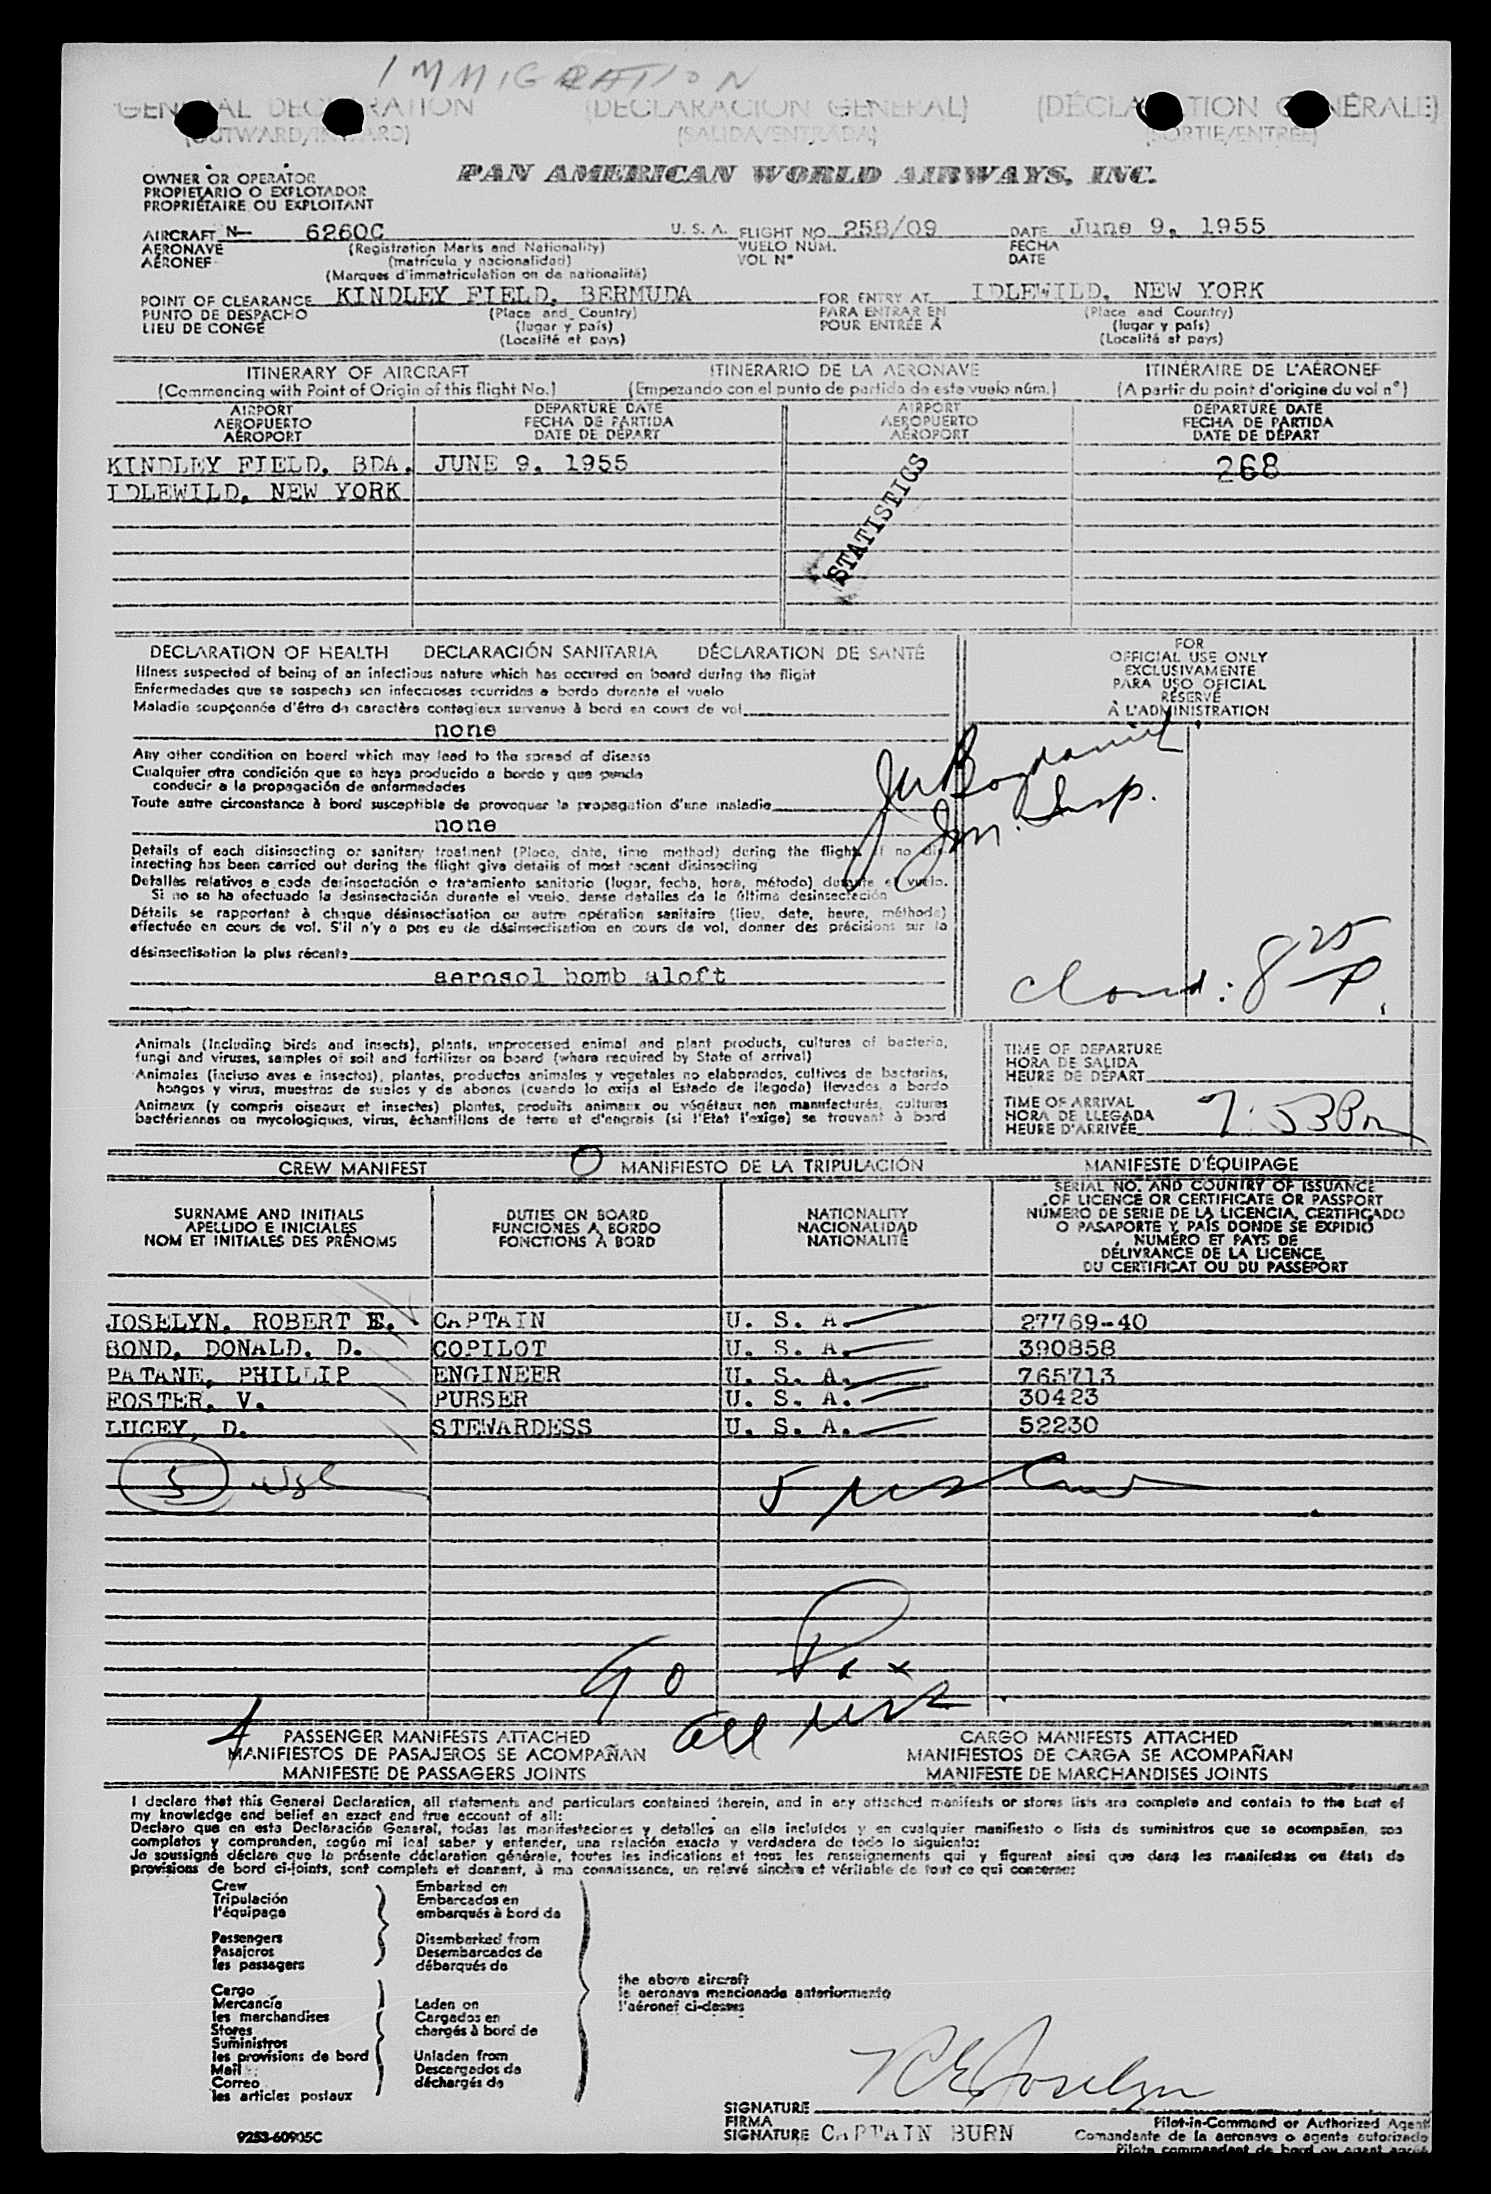 IMMIGRATION
GENERAL DECLARATION (DECLARACION GENERAL) (DÉCLARATION GÉNÉRALE)
(OUTWARD/INWARD) (SALIDA/ENTRADA) (SORTIE/ENTRÉE)
OWNER OR OPERATOR
PROPIETARIO O EXPLOTADOR
PROPRIÉTAIRE OU EXPLOITANT
PAN AMERICAN WORLD AIRWAYS, INC.
AIRCRAFT N- 6260C U. S. A. FLIGHT NO. 258/09 DATE June 9, 1955
AERONAVE (Registration Marks and Nationality) VUELO NÚM. FECHA
AÉRONEF (matrícula y nacionalidad) VOL Nº DATE
(Marques d'immatriculation on de nationalité)
POINT OF CLEARANCE KINDLEY FIELD, BERMUDA FOR ENTRY AT IDLEWILD, NEW YORK
PUNTO DE DESPACHO (Place and Country) PARA ENTRAR EN (Place and Country)
LIEU DE CONGÉ (lugar y país) POUR ENTRÉE À (lugar y país)
(Localité et pays) (Localité et pays)
ITINERARY OF AIRCRAFT ITINERARIO DE LA AERONAVE ITINÉRAIRE DE L'AÉRONEF
(Commencing with Point of Origin of this flight No.) (Empezando con el punto de partida de este vuelo núm.) (A partir du point d'origine du vol nº)
AIRPORT DEPARTURE DATE AIRPORT DEPARTURE DATE
AEROPUERTO FECHA DE PARTIDA AEROPUERTO FECHA DE PARTIDA
AÉROPORT DATE DE DÉPART AÉROPORT DATE DE DÉPART
KINDLEY FIELD, BDA. JUNE 9, 1955 268
IDLEWILD, NEW YORK
STATISTICS
DECLARATION OF HEALTH DECLARACIÓN SANITARIA DÉCLARATION DE SANTÉ
Illness suspected of being of an infectious nature which has occured on board during the flight
Enfermedades que se sospecha son infecciosas ocurridas a bordo durante el vuelo
Maladie soupçonnée d'être de caractère contagieux survenue à bord en cours de vol
none
Any other condition on board which may lead to the spread of disease
Cualquier otra condición que se haya producido a bordo y que pueda
conducir a la propagación de enfermedades
Toute autre circonstance à bord susceptible de provoquer la propagation d'une maladie
none
Details of each disinsecting or sanitary treatment (Place, date, time method) during the flight if no dis-
insecting has been carried out during the flight give details of most recent disinsecting
Detalles relativos a cada desinsectación o tratamiento sanitario (lugar, fecha, hora, método) durante el vuelo.
Si no se ha efectuado la desinsectación durante el vuelo, dense detalles de la última desinsectación
Détails se rapportant à chaque désinsectisation ou autre opération sanitaire (lieu, date, heure, méthode)
effectuée en cours de vol. S'il n'y a pas eu de désinsectisation en cours de vol, donner des précisions sur la
désinsectisation la plus récente
aerosol bomb aloft
FOR
OFFICIAL USE ONLY
EXCLUSIVAMENTE
PARA USO OFICIAL
RÉSERVÉ
À L'ADMINISTRATION
Imm. Insp.
8 25 P
Animals (Including birds and insects), plants, unprocessed animal and plant products, cultures of bacteria,
fungi and viruses, samples of soil and fertilizer on board (where required by State of arrival)
Animales (incluso aves e insectos), plantas, productos animales y vegetales no elaborados, cultivos de bacterias,
hongos y virus, muestras de suelos y de abonos (cuando lo exija el Estado de llegada) llevados a bordo
Animaux (y compris oiseaux et insectes) plantes, produits animaux ou végétaux non manufacturés, cultures
bactériennes ou mycologiques, virus, échantillons de terre et d'engrais (si l'Etat l'exige) se trouvant à bord
TIME OF DEPARTURE
HORA DE SALIDA
HEURE DE DÉPART
TIME OF ARRIVAL
HORA DE LLEGADA
HEURE D'ARRIVÉE
7:53 Pm
CREW MANIFEST O MANIFIESTO DE LA TRIPULACIÓN MANIFESTE D'ÉQUIPAGE
SURNAME AND INITIALS
APELLIDO E INICIALES
NOM ET INITIALES DES PRÉNOMS
DUTIES ON BOARD
FUNCIONES A BORDO
FONCTIONS À BORD
NATIONALITY
NACIONALIDAD
NATIONALITÉ
SERIAL NO. AND COUNTRY OF ISSUANCE
OF LICENCE OR CERTIFICATE OR PASSPORT
NÚMERO DE SERIE DE LA LICENCIA, CERTIFICADO
O PASAPORTE Y PAÍS DONDE SE EXPIDIÓ
NUMÉRO ET PAYS DE
DÉLIVRANCE DE LA LICENCE,
DU CERTIFICAT OU DU PASSEPORT
JOSELYN, ROBERT E. CAPTAIN U. S. A. 27769-40
BOND, DONALD, D. COPILOT U. S. A. 390858
PATANE, PHILLIP ENGINEER U. S. A. 765713
FOSTER, V. PURSER U. S. A. 30423
LUCEY, D. STEWARDESS U. S. A. 52230
5
5 USC
90 Pax
all USC
PASSENGER MANIFESTS ATTACHED CARGO MANIFESTS ATTACHED
MANIFIESTOS DE PASAJEROS SE ACOMPAÑAN MANIFIESTOS DE CARGA SE ACOMPAÑAN
MANIFESTE DE PASSAGERS JOINTS MANIFESTE DE MARCHANDISES JOINTS
I declare that this General Declaration, all statements and particulars contained therein, and in any attached manifests or stores lists are complete and contain to the best of
my knowledge and belief an exact and true account of all:
Declaro que en esta Declaración General, todas las manifestaciones y detalles en ella incluídos y en cualquier manifiesto o lista de suministros que se acompañan, son
completos y comprenden, según mi leal saber y entender, una relación exacta y verdadera de todo lo siguiente:
Je soussigné déclare que la présente déclaration générale, toutes les indications et tous les renseignements qui y figurent ainsi que dans les manifestes ou états de
provisions de bord ci-joints, sont complets et donnent, à ma connaissance, un relevé sincère et véritable de tout ce qui concerne:
Crew Embarked on
Tripulación Embarcados en
l'équipage embarqués à bord de
Passengers Disembarked from
Pasajeros Desembarcados de
les passagers débarqués de
the above aircraft
la aeronave mencionada anteriormente
l'aéronef ci-dessus
Cargo
Mercancía Laden on
les marchandises Cargados en
Stores chargés à bord de
Suministros
les provisions de bord Unladen from
Mail Descargados de
Correo déchargés de
les articles postaux
R E Joselyn
SIGNATURE
FIRMA Pilot-in-Command or Authorized Agent
SIGNATURE CAPTAIN BURN Comandante de la aeronave o agente autorizado
Pilote commandant de bord ou agent agréé
9253-60905C